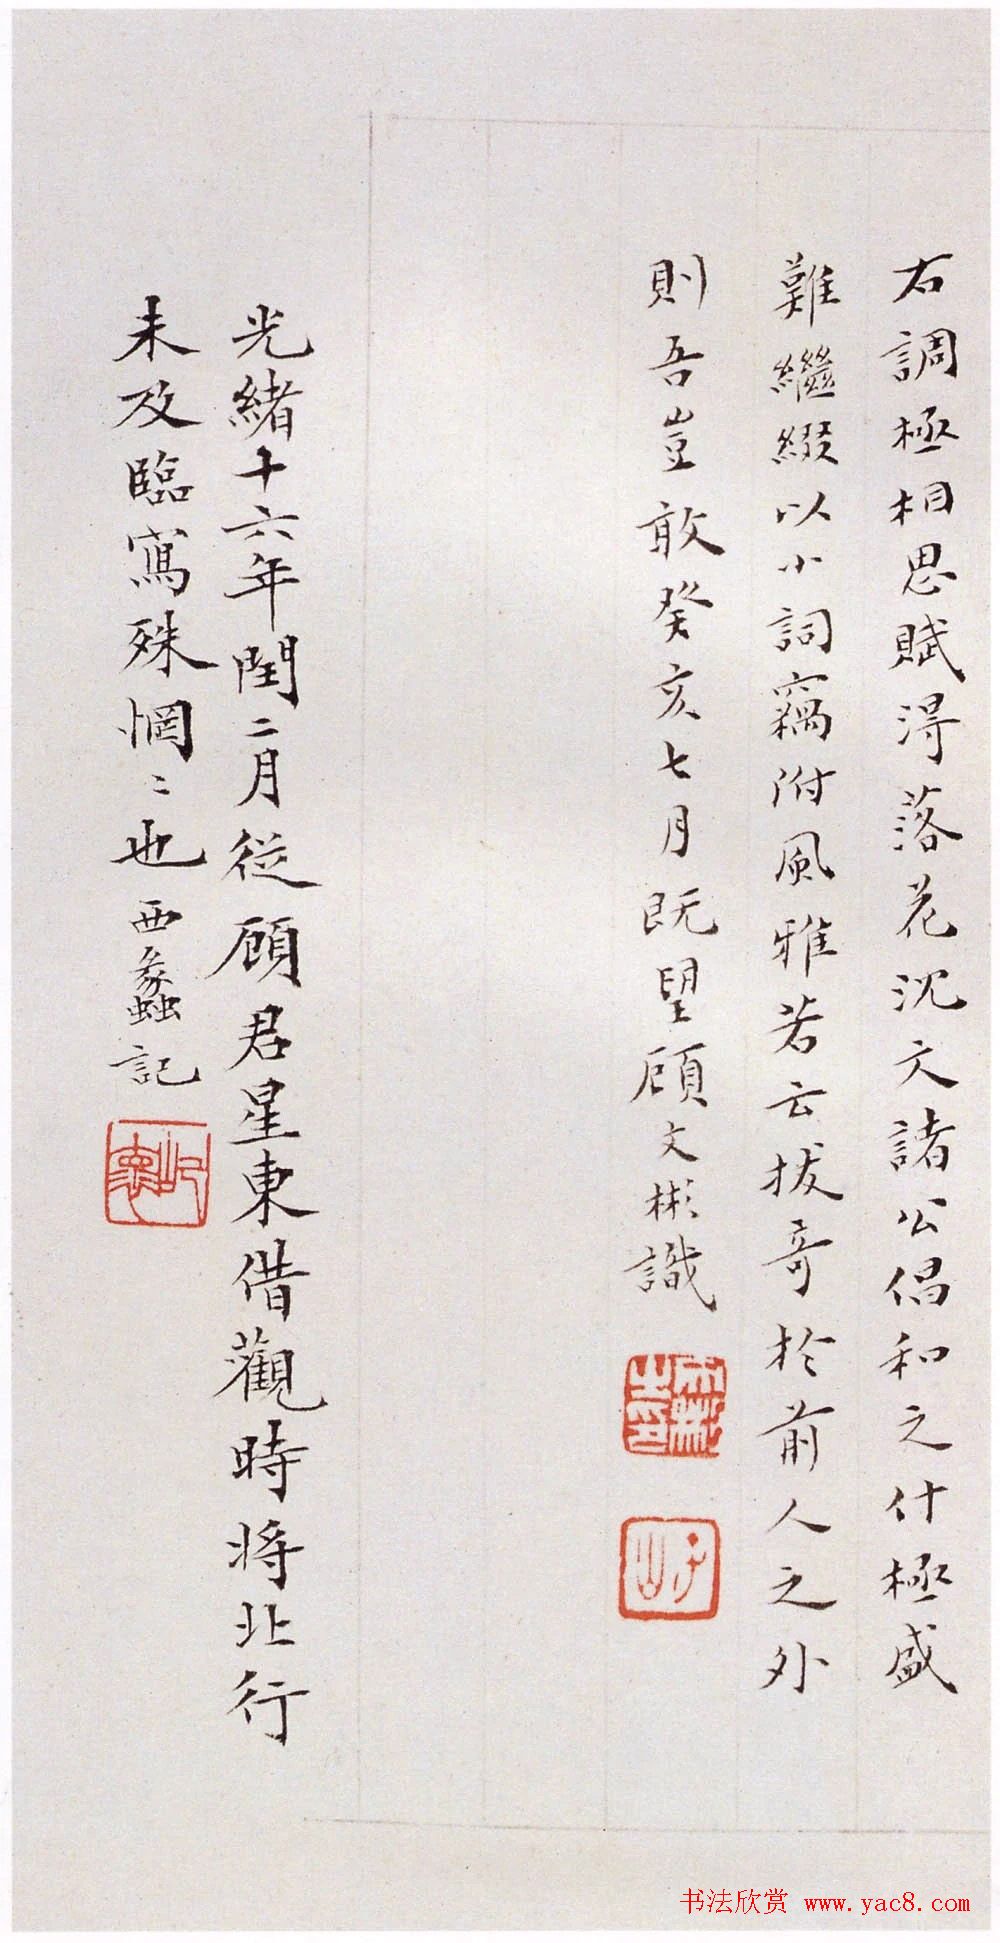 右調極相思賦得落花沈文諸公倡和之什極盛
難繼綴以小詞竊附風雅若云拔奇於前人之外
則吾豈敢癸亥七月既望顧文彬識
文彬之印
子山
光緒十六年閏二月從顧君星東借觀時將北行
未及臨寫殊惘〻也西蠡記
書法欣赏 www.yac8.com